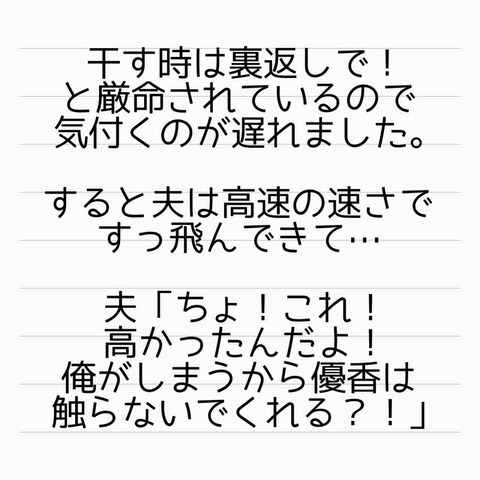 干す時は裏返しで！
と厳命されているので
気付くのが遅れました。
すると夫は高速の速さで
すっ飛んできて…
夫「ちょ！これ！
高かったんだよ！
俺がしまうから優香は
触らないでくれる？！」